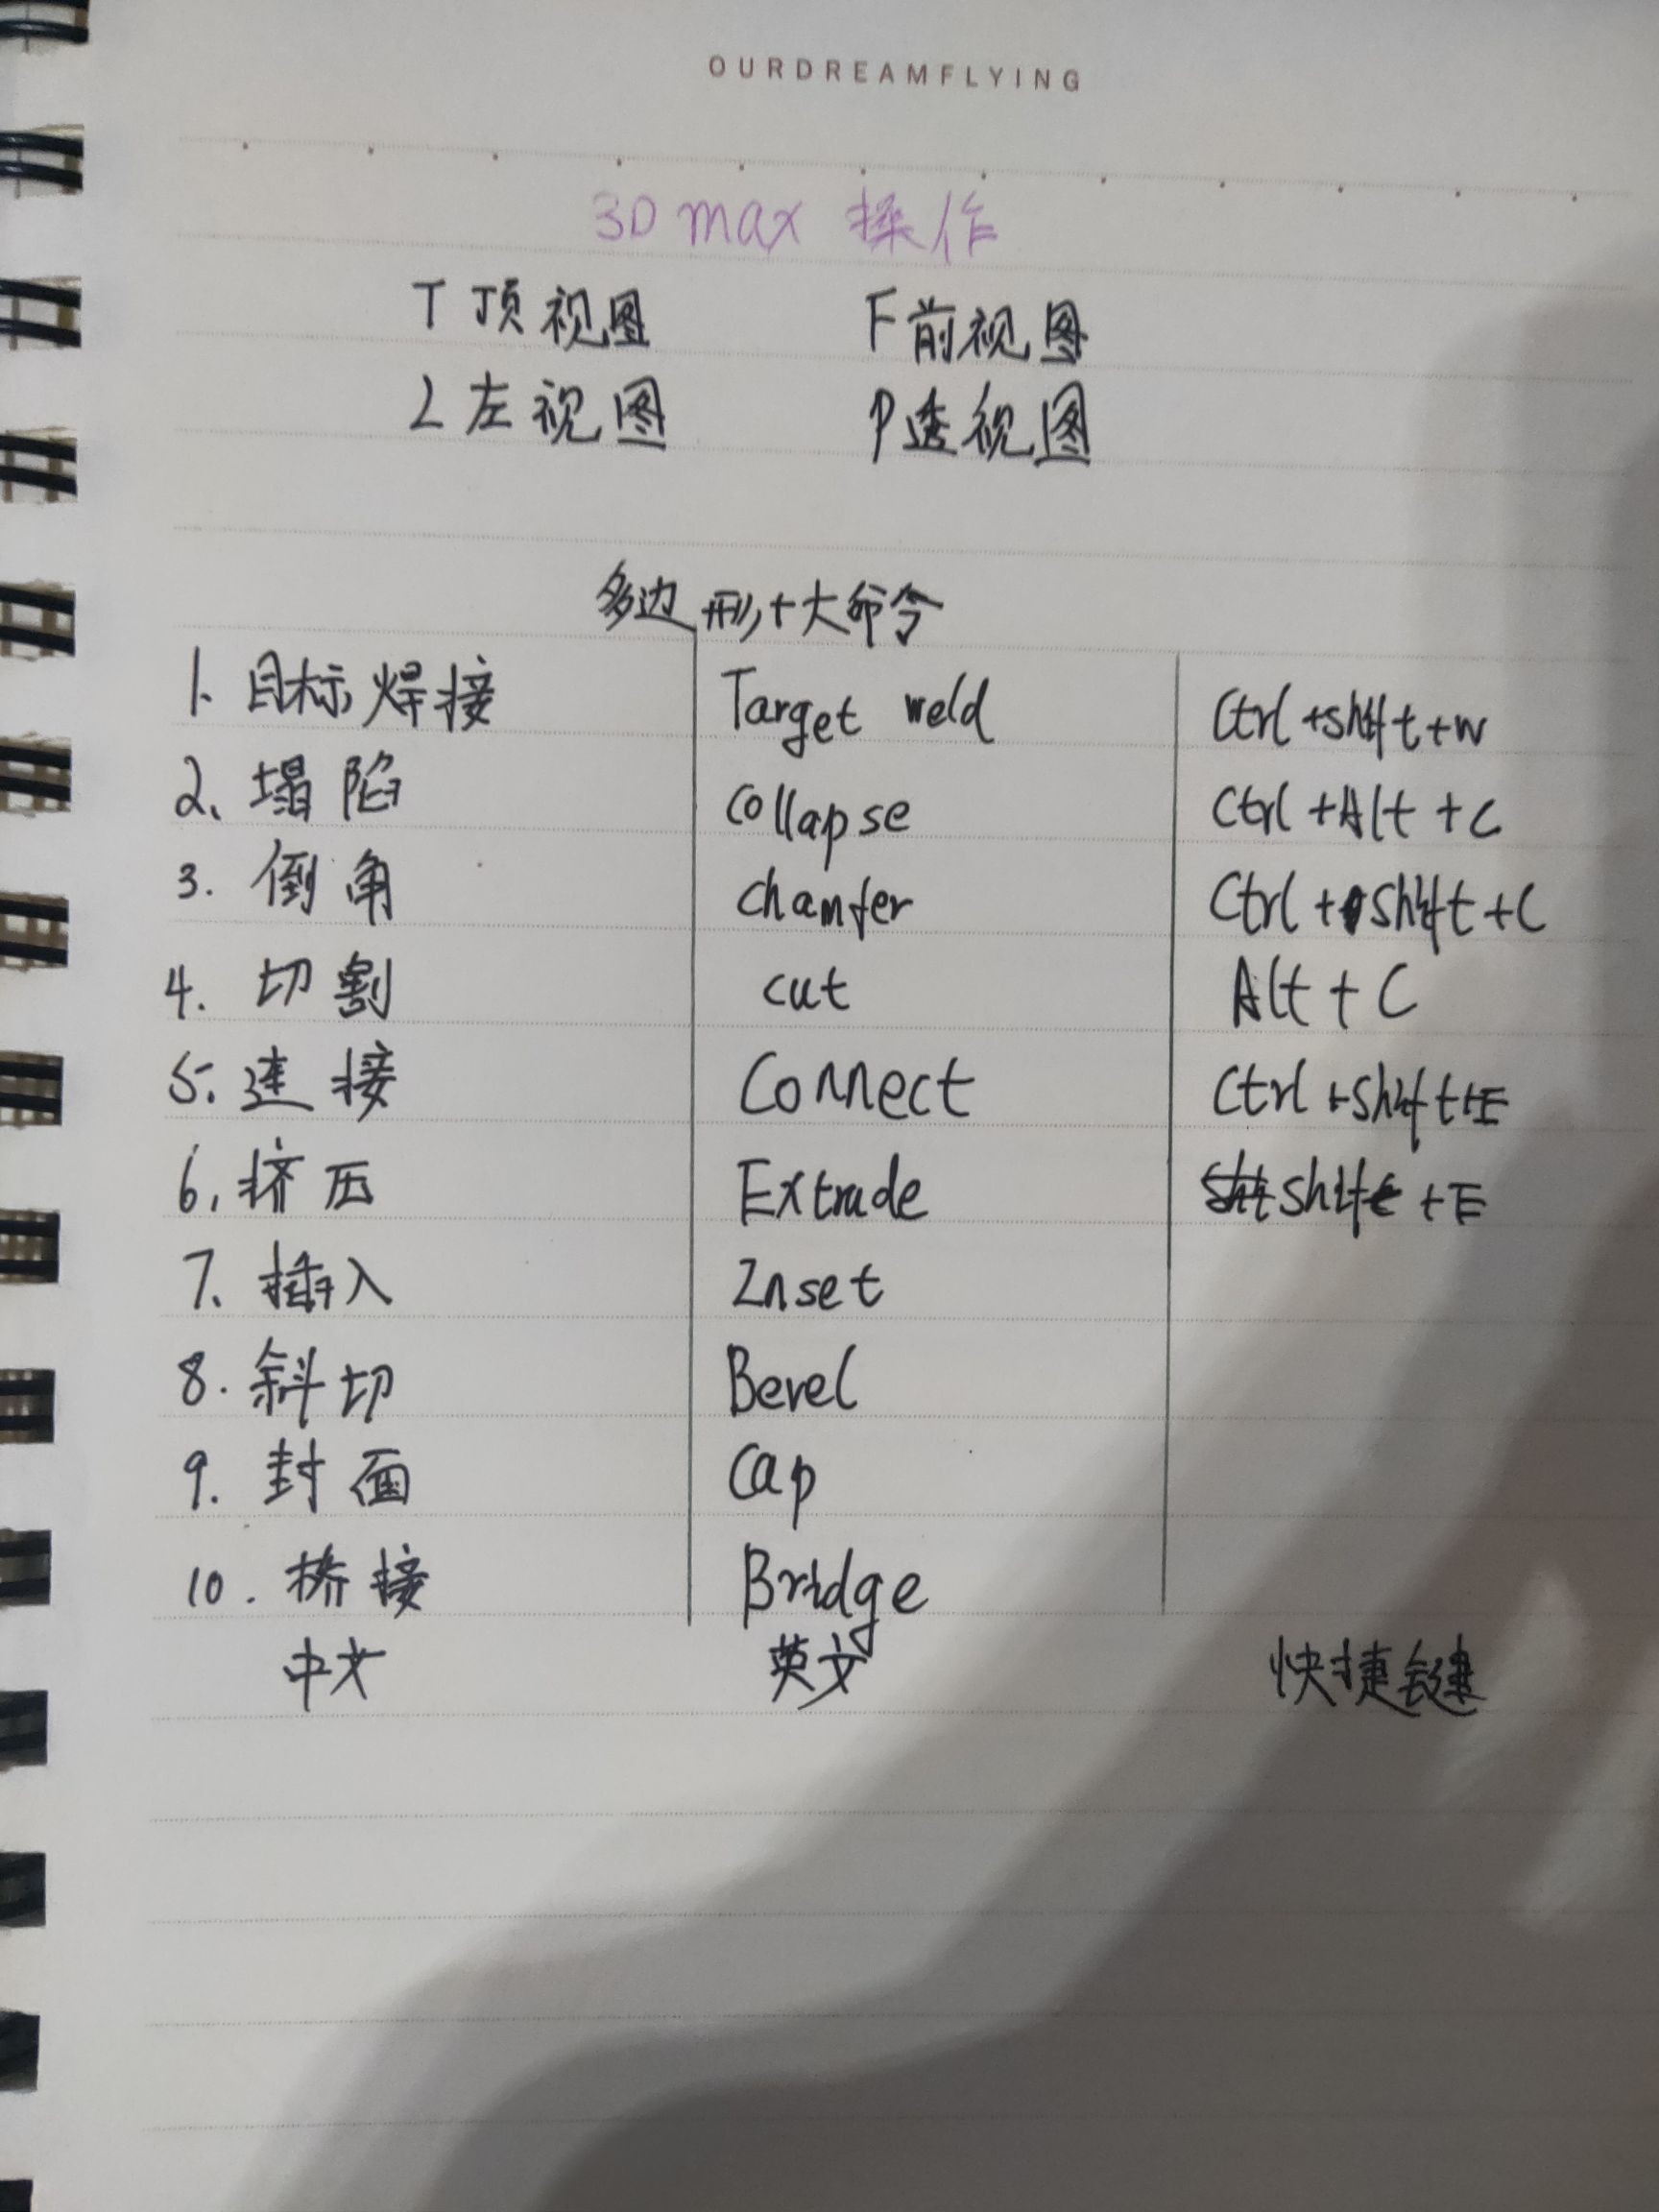 OURDREAMFLYING
3D max 操作
T 顶视图 F前视图
L 左视图 P透视图
多边形十大命令
1. 目标焊接 Target weld Ctrl+shift+w
2、塌陷 Collapse Ctrl+Alt+C
3. 倒角 Chamfer Ctrl+shift+C
4. 切割 cut Alt+C
5. 连接 Connect Ctrl+shift+E
6. 挤压 Extrude shift+E
7. 插入 Inset
8. 斜切 Bevel
9. 封面 Cap
10. 桥接 Bridge
中文 英文 快捷键